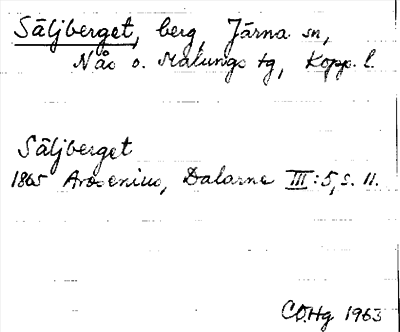 Säljberget, berg, Järna sn,
Nås o. Malungs tg, Kopp. l.
Säljberget
1865 Arosenius, Dalarne III:5, s. 11.
COHg 1963